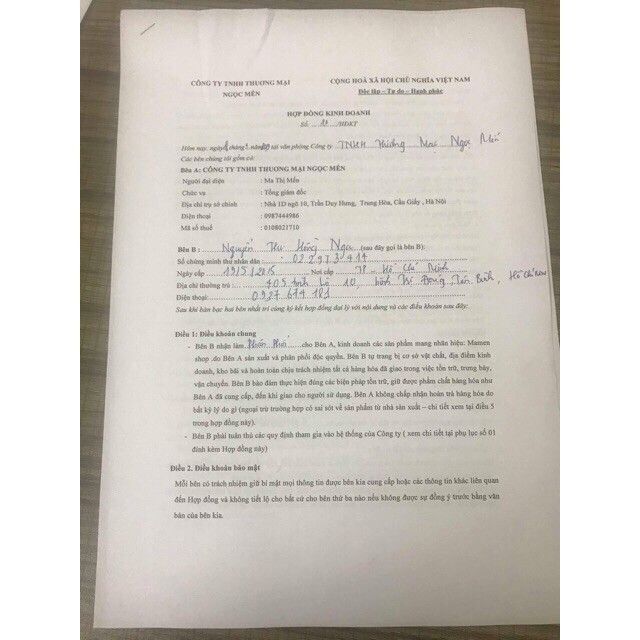 CÔNG TY TNHH THƯƠNG MẠI
NGỌC MẾN
CỘNG HOÀ XÃ HỘI CHỦ NGHĨA VIỆT NAM
Độc lập – Tự do – Hạnh phúc
HỢP ĐỒNG KINH DOANH
Số: /HĐKT
Hôm nay, ngày tháng năm tại văn phòng Công ty TNHH Thương Mại Ngọc Mến
Các bên chúng tôi gồm có:
Bên A: CÔNG TY TNHH THƯƠNG MẠI NGỌC MẾN
Người đại diện : Ma Thị Mến
Chức vụ : Tổng giám đốc
Địa chỉ trụ sở chính : Nhà 1D ngõ 10, Trần Duy Hưng, Trung Hòa, Cầu Giấy , Hà Nội
Điện thoại : 0987444986
Mã số thuế : 0108021710
Bên B : Nguyễn Thu Hồng Nga (sau đây gọi là bên B):
Số chứng minh thư nhân dân : 022973414
Ngày cấp 19/5/2015 Nơi cấp TP - Hồ Chí Minh
Địa chỉ thường trú : 405 tỉnh lộ 10, Bình Trị Đông, Tân Bình, Hồ Chí Minh
Điện thoại: 0927674181
Sau khi bàn bạc hai bên nhất trí cùng ký kết hợp đồng đại lý với nội dung và các điều khoản sau đây:
Điều 1: Điều khoản chung
- Bên B nhận làm Phân Phối cho Bên A, kinh doanh các sản phẩm mang nhãn hiệu: Mamen
shop .do Bên A sản xuất và phân phối độc quyền. Bên B tự trang bị cơ sở vật chất, địa điểm kinh
doanh, kho bãi và hoàn toàn chịu trách nhiệm tất cả hàng hóa đã giao trong việc tồn trữ, trưng bày,
vận chuyển. Bên B bảo đảm thực hiện đúng các biện pháp tồn trữ, giữ được phẩm chất hàng hóa như
Bên A đã cung cấp, đến khi giao cho người sử dụng. Bên A không chấp nhận hoàn trả hàng hóa do
bất kỳ lý do gì (ngoại trừ trường hợp có sai sót về sản phẩm từ nhà sản xuất – chi tiết xem tại điều 5
trong hợp đồng này).
- Bên B phải tuân thủ các quy định tham gia vào hệ thống của Công ty ( xem chi tiết tại phụ lục số 01
đính kèm Hợp đồng này)
Điều 2. Điều khoản bảo mật
Mỗi bên có trách nhiệm giữ bí mật mọi thông tin được bên kia cung cấp hoặc các thông tin khác liên quan
đến Hợp đồng và không tiết lộ cho bất cứ cho bên thứ ba nào nếu không được sự đồng ý trước bằng văn
bản của bên kia.